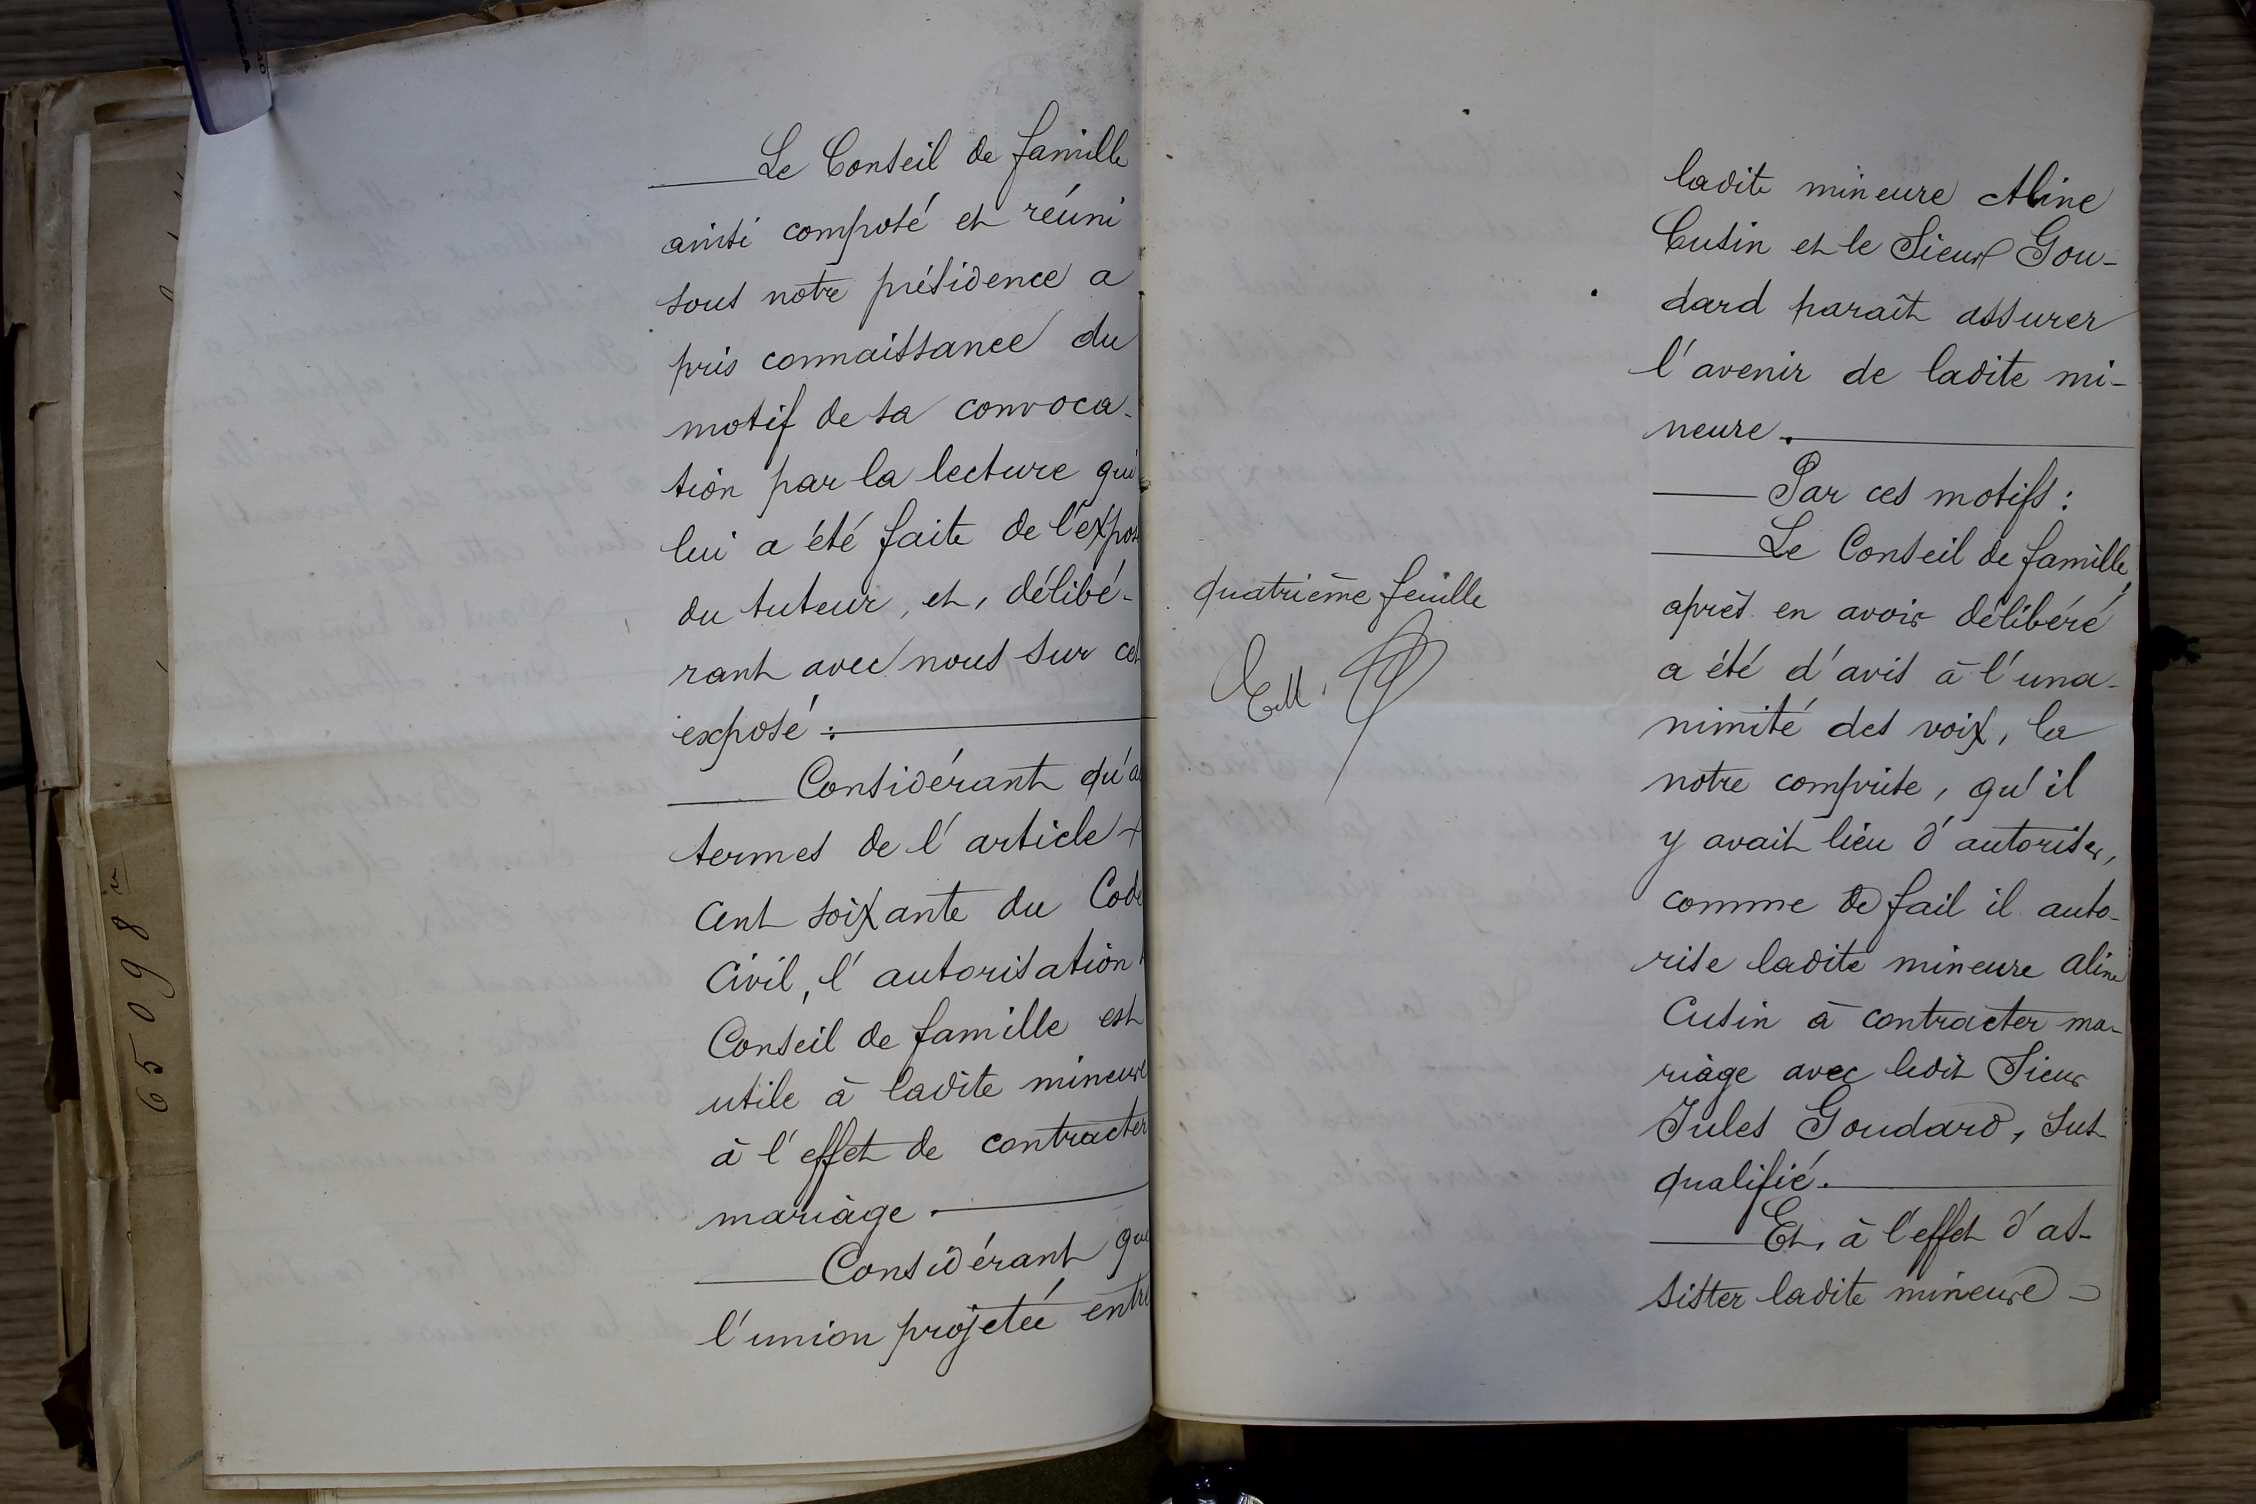 Le Conseil de famille
ainsi composé et réuni
sous notre présidence a
pris connaissance du
motif de sa convoca-
tion par la lecture qui
lui a été faite de l'expos
du tuteur, et, délibé-
rant avec nous sur cet
exposé :
Considérant qu'a
termes de l'article
Cent soixante du Code
Civil, l'autorisation
Conseil de famille est
utile à ladite mineure
à l'effet de contracter
mariage.
Considérant que
l'union projetée entre
quatrième feuille
ladite mineure Aline
Cusin et le Sieur Gou-
dard paraît assurer
l'avenir de ladite mi-
neure.
Par ces motifs :
Le Conseil de famille,
après en avoir délibéré
a été d'avis à l'una-
nimité des voix, la
notre comprise, qu'il
y avait lieu d'autoriser,
comme de fail il auto-
rise ladite mineure Aline
Cusin à contracter ma-
riage avec ledit Sieur
Jules Goudard, sus
qualifié.
Et, à l'effet d'as-
sister ladite mineure
65098